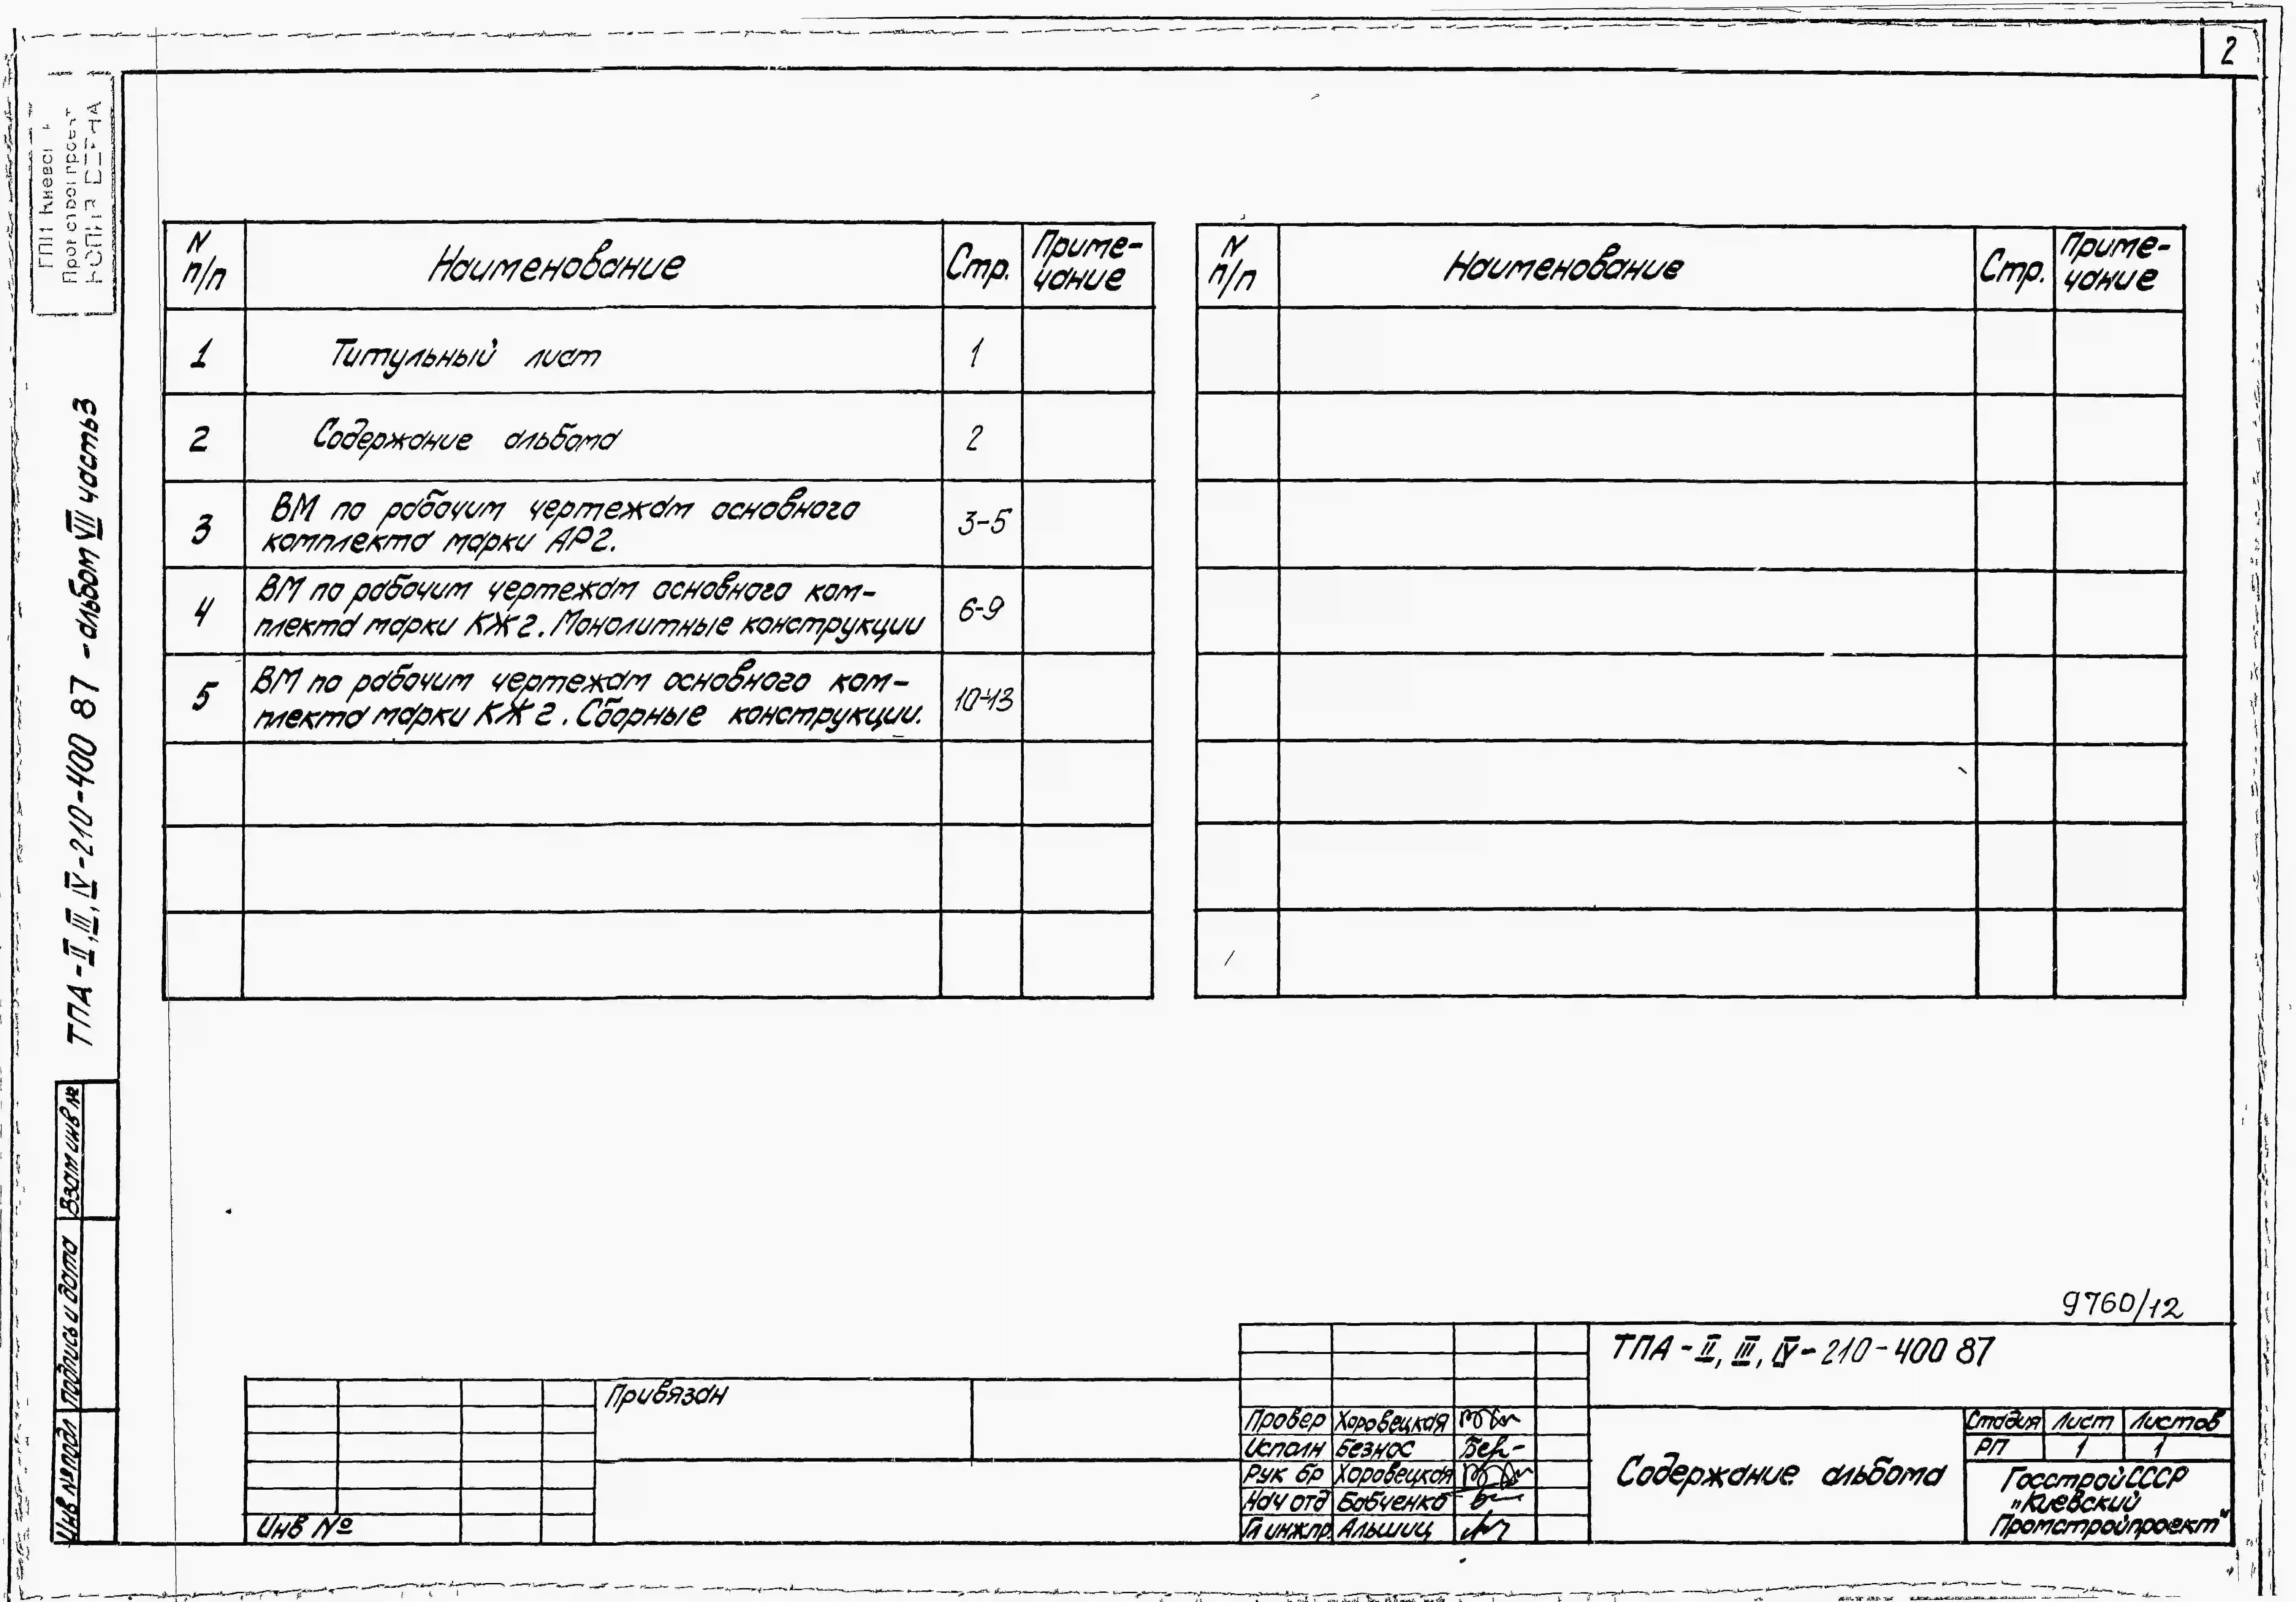 2
ТПА-II,III,IV-210-400 87 -альбом VIII часть3
Взам инв №
Подпись и дата
Инв №подл
N п/п
Наименование
Стр.
Приме-
чание
1 Титульный лист 1
2 Содержание альбома 2
3 ВМ по рабочим чертежам основного
комплекта марки АР2. 3-5
4 ВМ по рабочим чертежам основного ком-
плекта марки КЖ2. Монолитные конструкции 6-9
5 ВМ по рабочим чертежам основного ком-
плекта марки КЖ2. Сборные конструкции. 10-13
N п/п
Наименование
Стр.
Приме-
чание
9760/12
ТПА-II,III,IV-210-400 87
Привязан
Инв №
Провер Хоровецкая
Исполн Безнос
Рук бр Хоровецкая
Нач отд Бабченко
Гл инж пр. Альшиц
Содержание альбома
Стадия Лист Листов
РП 1 1
Госстрой СССР
„Киевский
Промстройпроект"